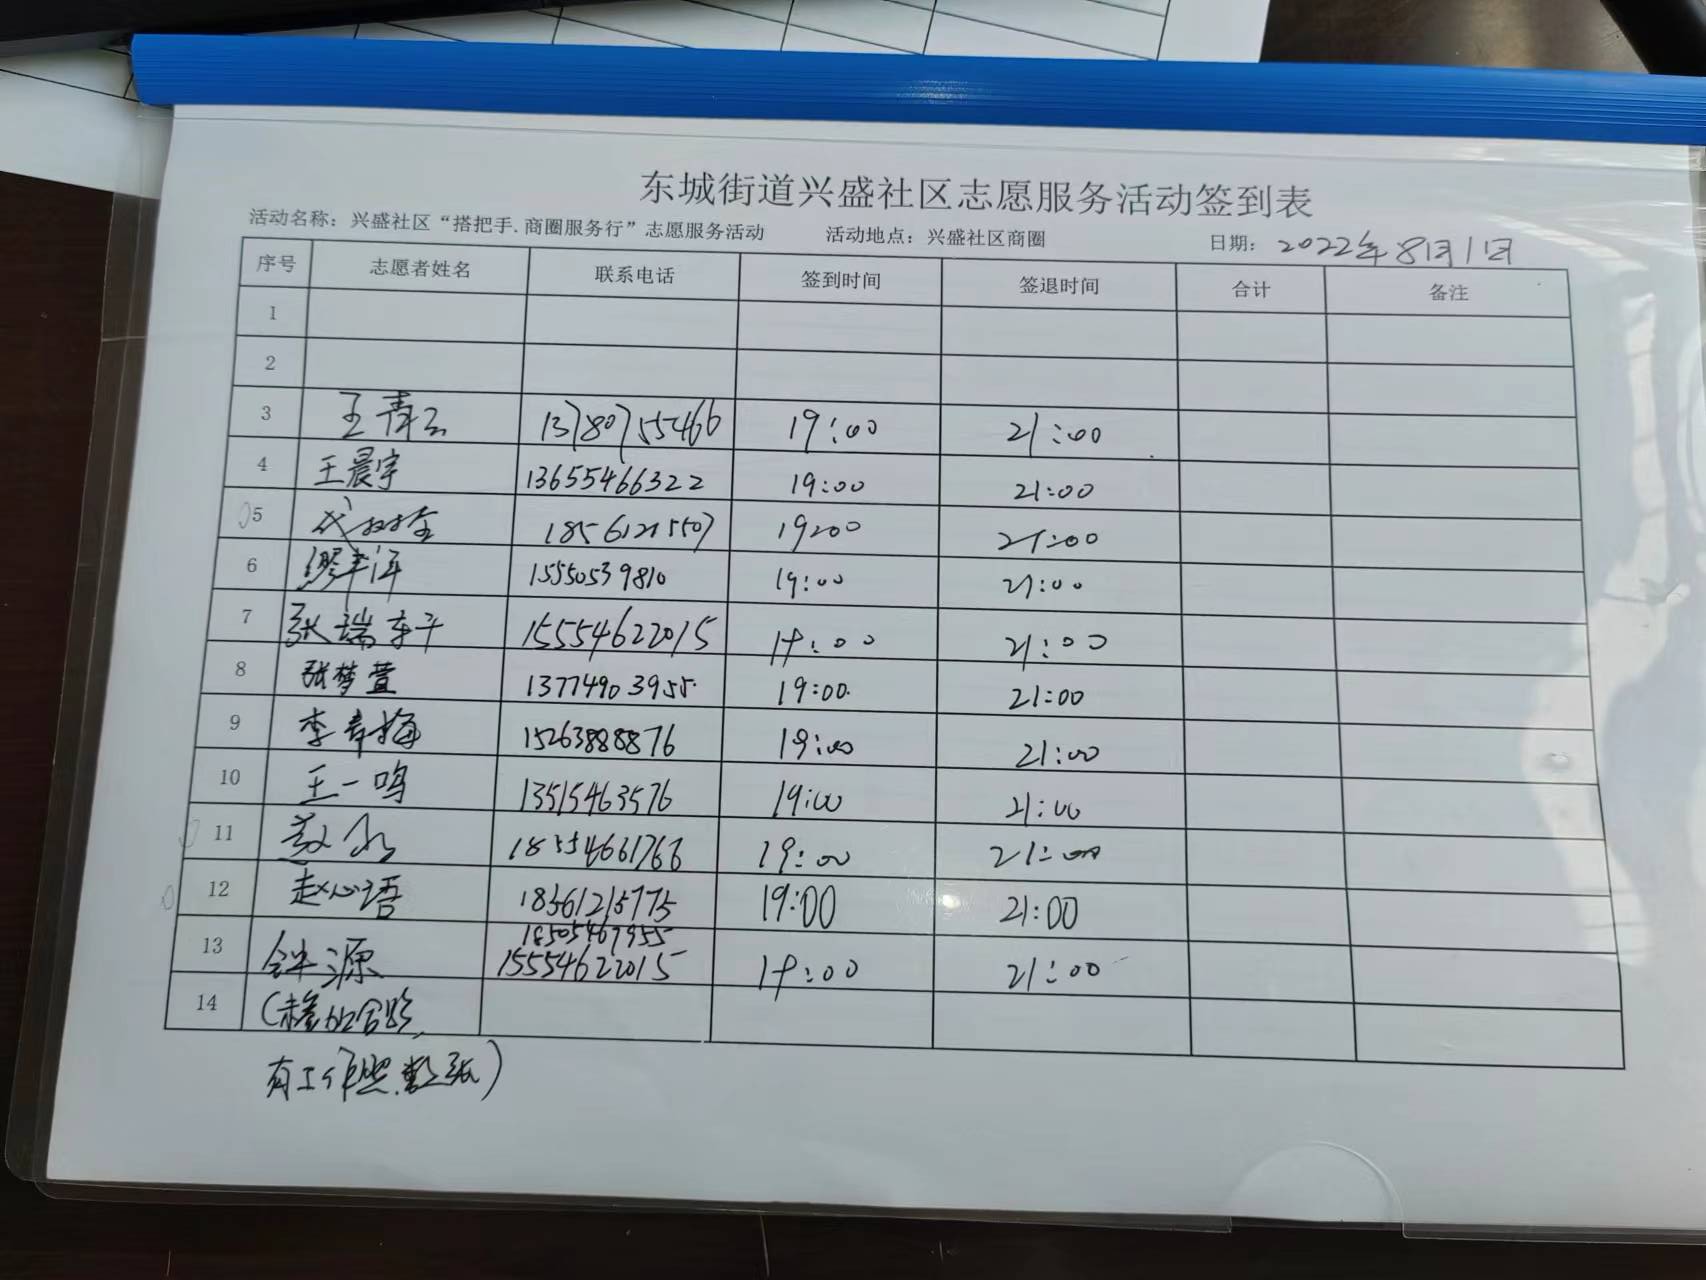 东城街道兴盛社区志愿服务活动签到表
活动名称：兴盛社区“搭把手.商圈服务行”志愿服务活动 活动地点：兴盛社区商圈 日期：2022年8月1日
序号 志愿者姓名 联系电话 签到时间 签退时间 合计 备注
1
2
3 王青云 13780755466 19:00 21:00
4 王晨宇 13655466322 19:00 21:00
5 18561215507 19:00 21:00
6 15550539810 19:00 21:00
7 张瑞 15554622015 19:00 21:00
8 张梦萱 13774903955 19:00 21:00
9 李春梅 15263888876 19:00 21:00
10 王一鸣 13515463576 19:00 21:00
11 18554661766 19:00 21:00
12 赵心语 18561215775 19:00 21:00
18505467955
13 钟源 15554622015 19:00 21:00
14 (未参加合影,
有工作照.数张)